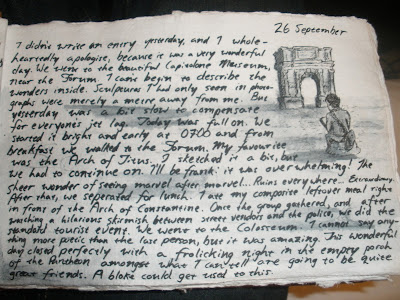 26 September
I didn't write an entry yesterday, and I whole-
heartedly apologise, because it was a very wonderful
day. We went to the beautiful Capitoline Museum,
near the Forum. I can't begin to describe the
wonders inside. Sculptures I had only seen in photo-
graphs were merely a metre away from me. But
yesterday was a bit slow to compensate
for everyone's jet lag. Today was full on. We
started it bright and early at 0700 and from
breakfast we walked to the Forum. My favourite
was the Arch of Titus. I sketched a bit, but
we had to continue on. I'll be frank: it was overwhelming! The
sheer wonder of seeing marvel after marvel... Ruins everywhere. Extraordinary.
After that, we seperated for lunch. I ate my composite leftover meal right
in front of the Arch of Constantine. Once the group gathered, and after
watching a hilarious skirmish between street vendors and the police, we did the
standard tourist event. We went to the Colosseum. I cannot say any-
thing more poetic than the last person, but it was amazing. This wonderful
day closed perfectly with a frolicking night in the empty porch
of the Pantheon amongst what I can tell are going to be quite
great friends. A bloke could get used to this.